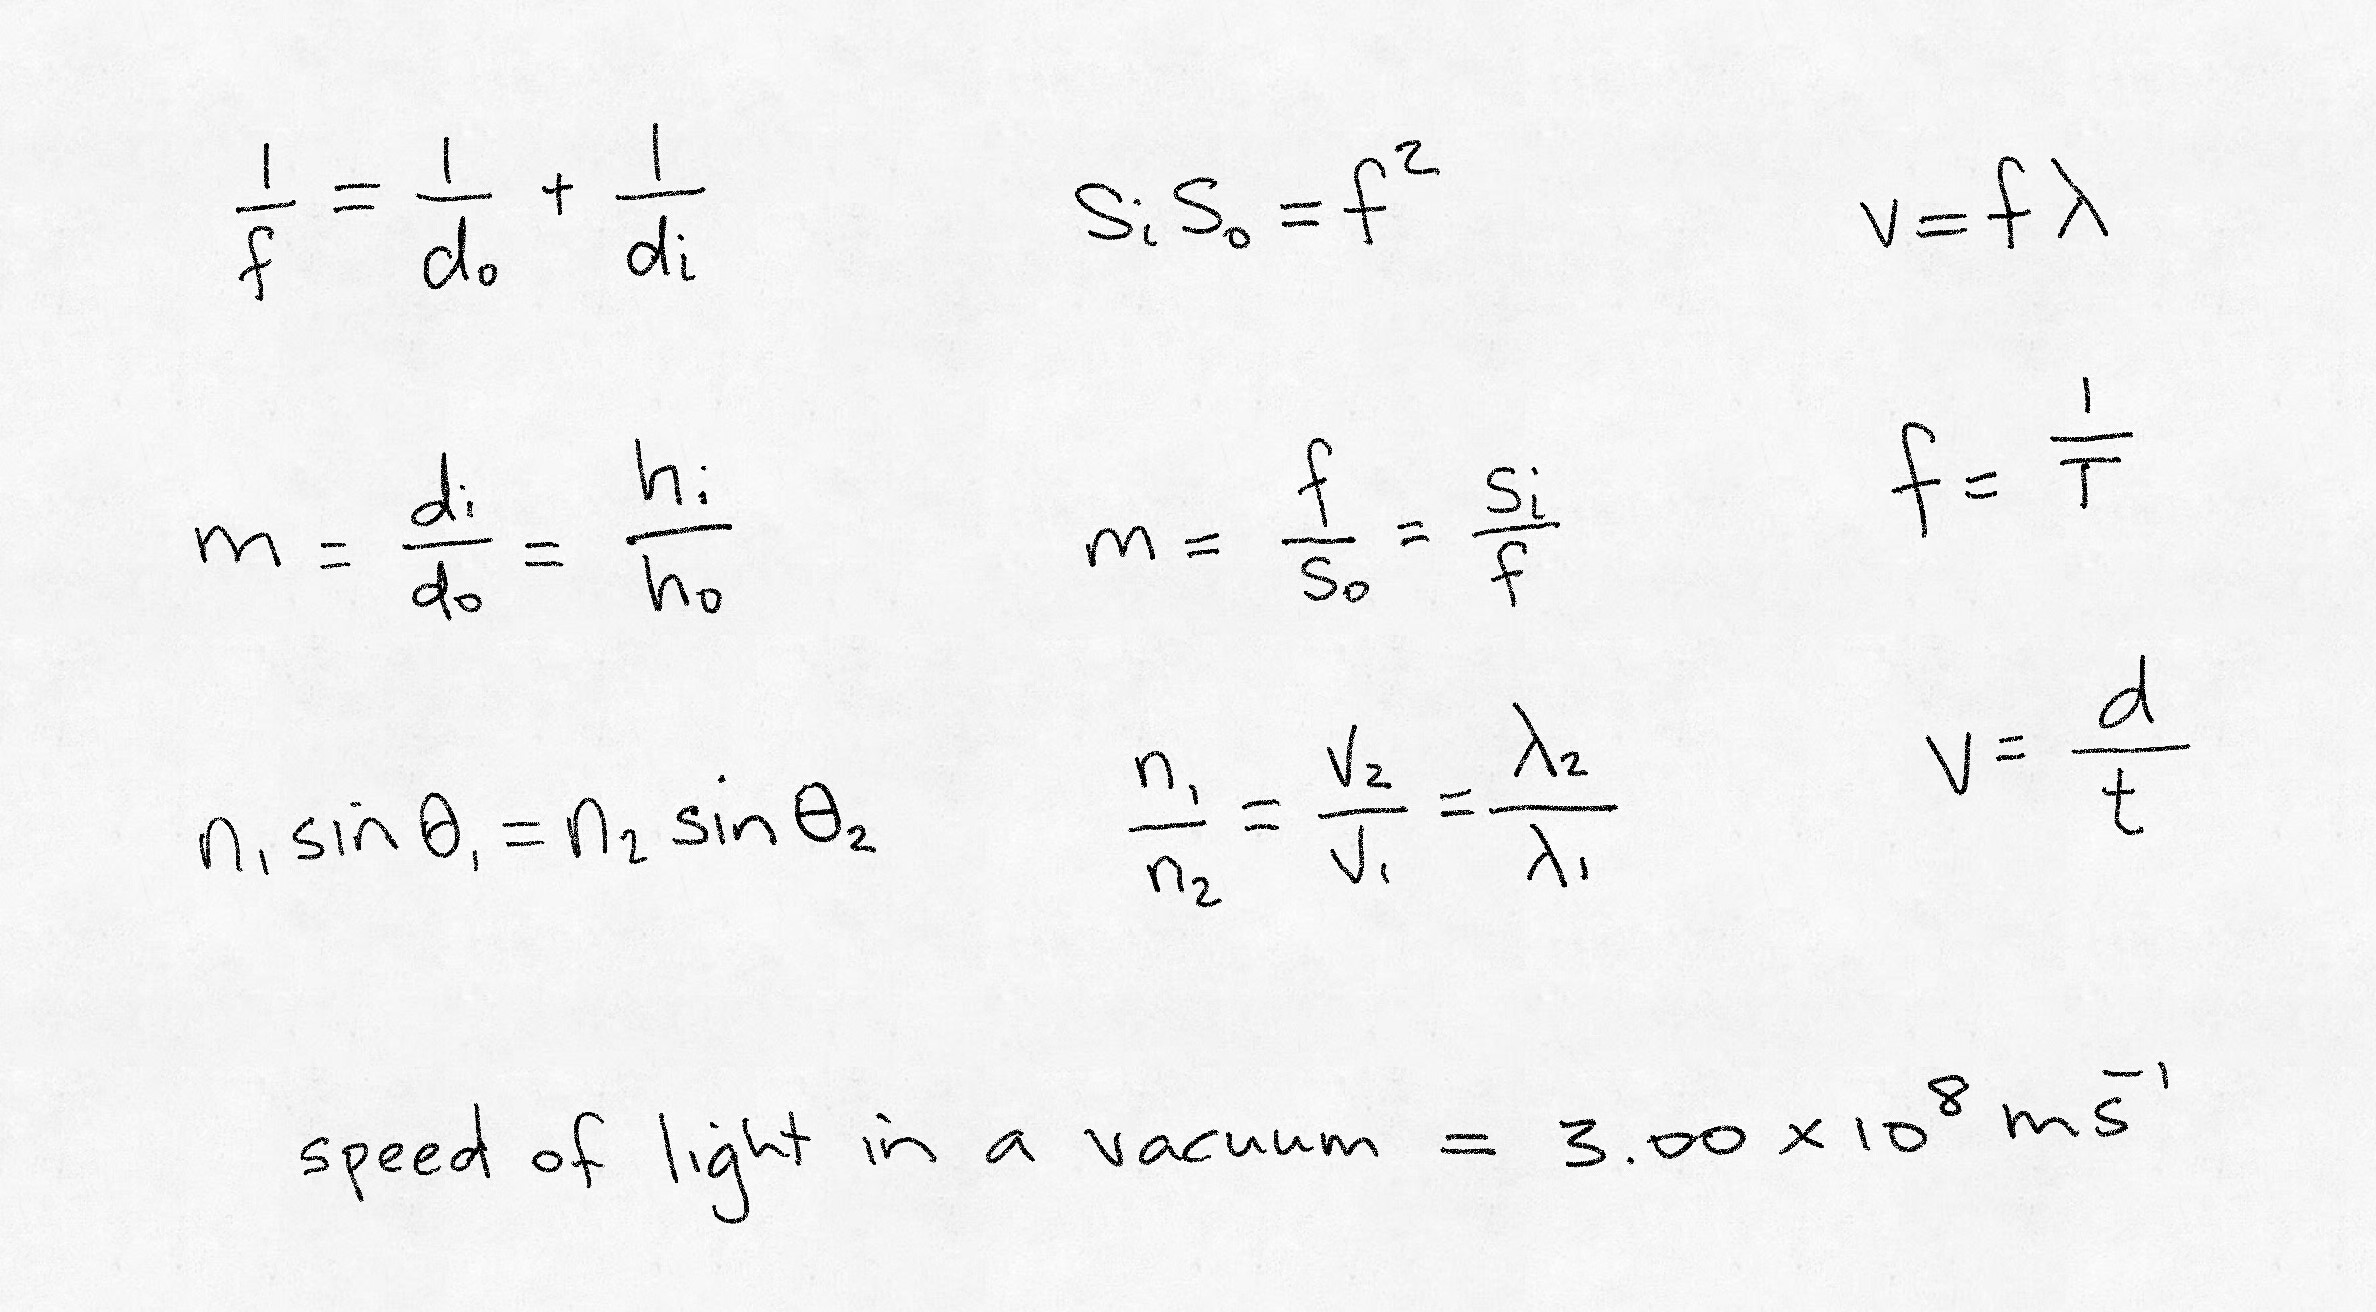 1/f = 1/d₀ + 1/dᵢ
SᵢS₀ = f²
v = fλ
m = dᵢ/d₀ = hᵢ/h₀
m = f/S₀ = Sᵢ/f
f = 1/T
n₁ sin θ₁ = n₂ sin θ₂
n₁/n₂ = v₂/v₁ = λ₂/λ₁
v = d/t
speed of light in a vacuum = 3.00 × 10⁸ ms⁻¹